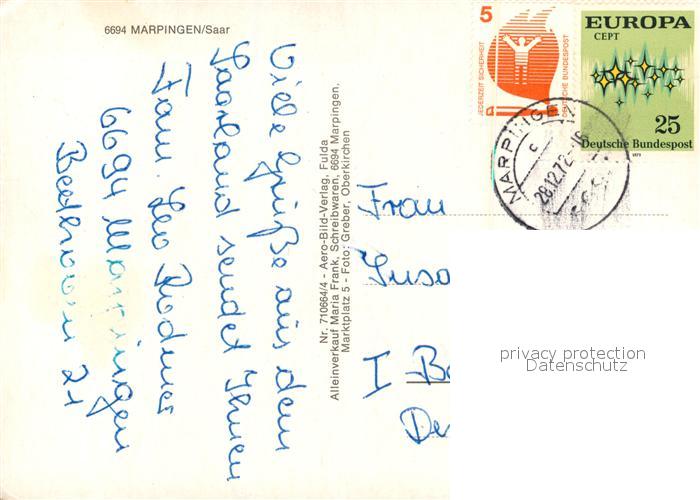 6694 MARPINGEN/Saar
Viele Grüße aus dem
Saarland sendet Ihnen
Fam. Leo
6694 Marpingen
21
Nr. 710664/4 - Aero-Bild-Verlag, Fulda
Alleinverkauf Maria Frank, Schreibwaren, 6694 Marpingen,
Marktplatz 5 - Foto: Greber, Oberkirchen
5
JEDERZEIT SICHERHEIT
DEUTSCHE BUNDESPOST
EUROPA
CEPT
25
Deutsche Bundespost
1972
MARPINGEN
c
28.12.72
Frau
I
privacy protection
Datenschutz